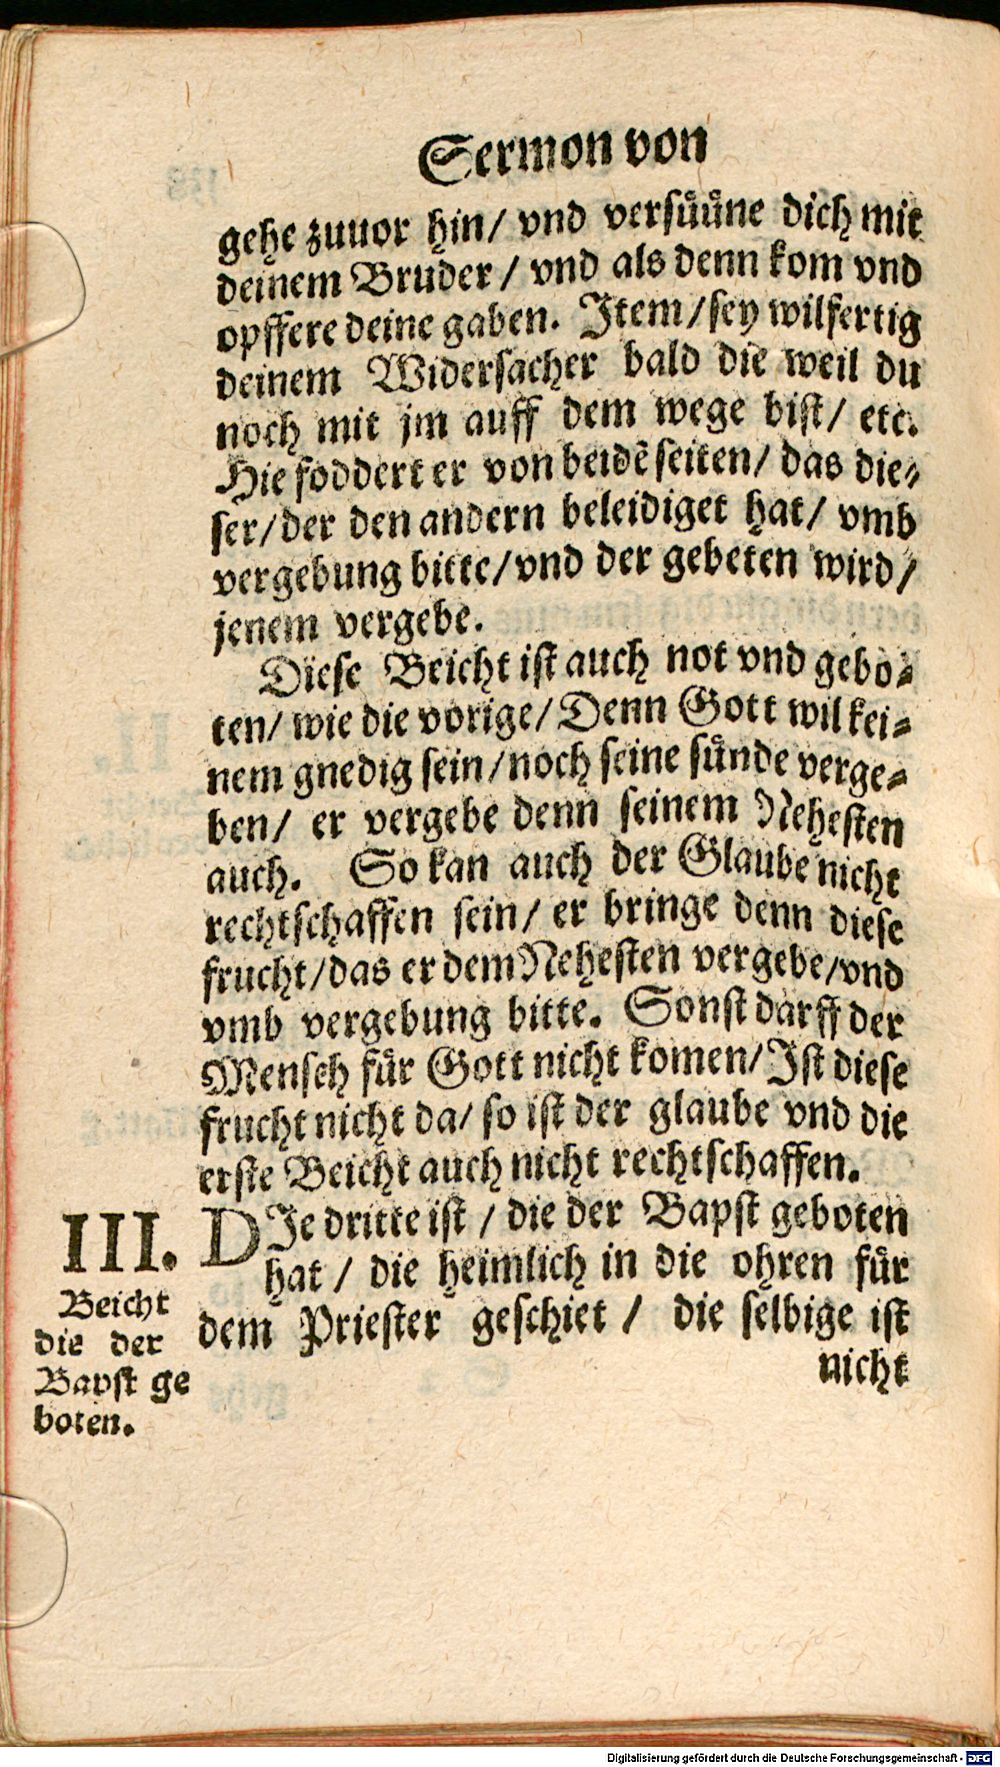 Sermon von
gehe zuuor hin/ vnd versuͤuͤne dich mit
deinem Bruder/ vnd als denn kom vnd
opffere deine gaben. Item/sey wilfertig
deinem Widersacher bald die weil du
noch mit jm auff dem wege bist/ etc.
Hie foddert er von beidẽ seiten/ das die⸗
ser/der den andern beleidiget hat/ vmb
vergebung bitte/vnd der gebeten wird/
jenem vergebe.
Diese Beicht ist auch not vnd gebo⸗
ten/ wie die vorige/ Denn Gott wil kei⸗
nem gnedig sein/noch seine suͤnde verge⸗
ben/ er vergebe denn seinem Nehesten
auch. So kan auch der Glaube nicht
rechtschaffen sein/ er bringe denn diese
frucht/das er dem Nehesten vergebe/vnd
vmb vergebung bitte. Sonst darff der
Mensch fuͤr Gott nicht komen/ Ist diese
frucht nicht da/ so ist der glaube vnd die
erste Beicht auch nicht rechtschaffen.
III.
DIe dritte ist / die der Bapst geboten
hat / die heimlich in die ohren fuͤr
dem Priester geschiet / die selbige ist
nicht
Beicht
die der
Bapst ge
boten.
Digitalisierung gefördert durch die Deutsche Forschungsgemeinschaft - DFG